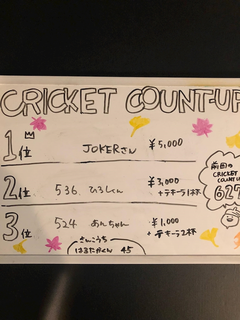 CRICKET COUNT-UP
1位 JOKERさん ¥5,000
2位 536. ひろしくん ¥3,000
+テキーラ1杯
3位 524 あんちゃん ¥1,000
+テキーラ2杯
さんこうち
はるたかくん 45
前回の
CRICKET
COUNT U
627